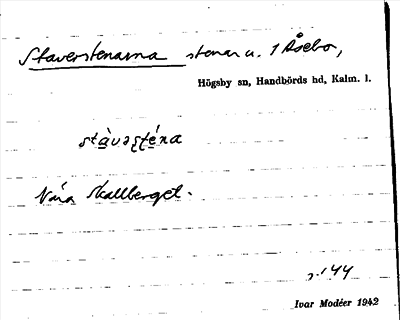 Staverstenarna stenar u. 1 Åsebo,
Högsby sn, Handbörds hd, Kalm. l.
stàvəʂʈéna
Nära Skallberget.
s. 144
Ivar Modéer 1942